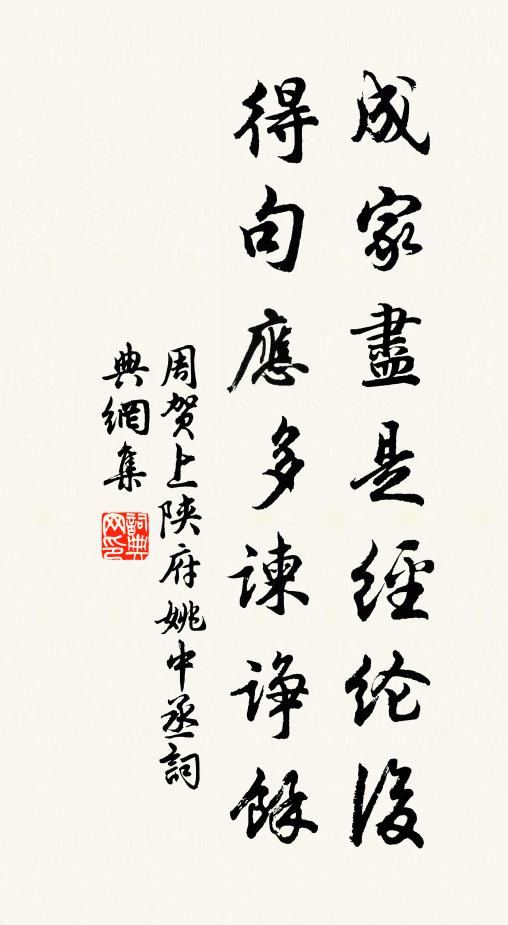 成家盡是經纶後
得句應多諫諍餘
周贺上陕府姚中丞詞
典網集
詞典
网印